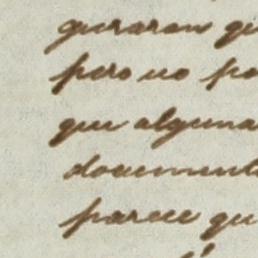 guraran
pero no
que alguna
document
parece qu